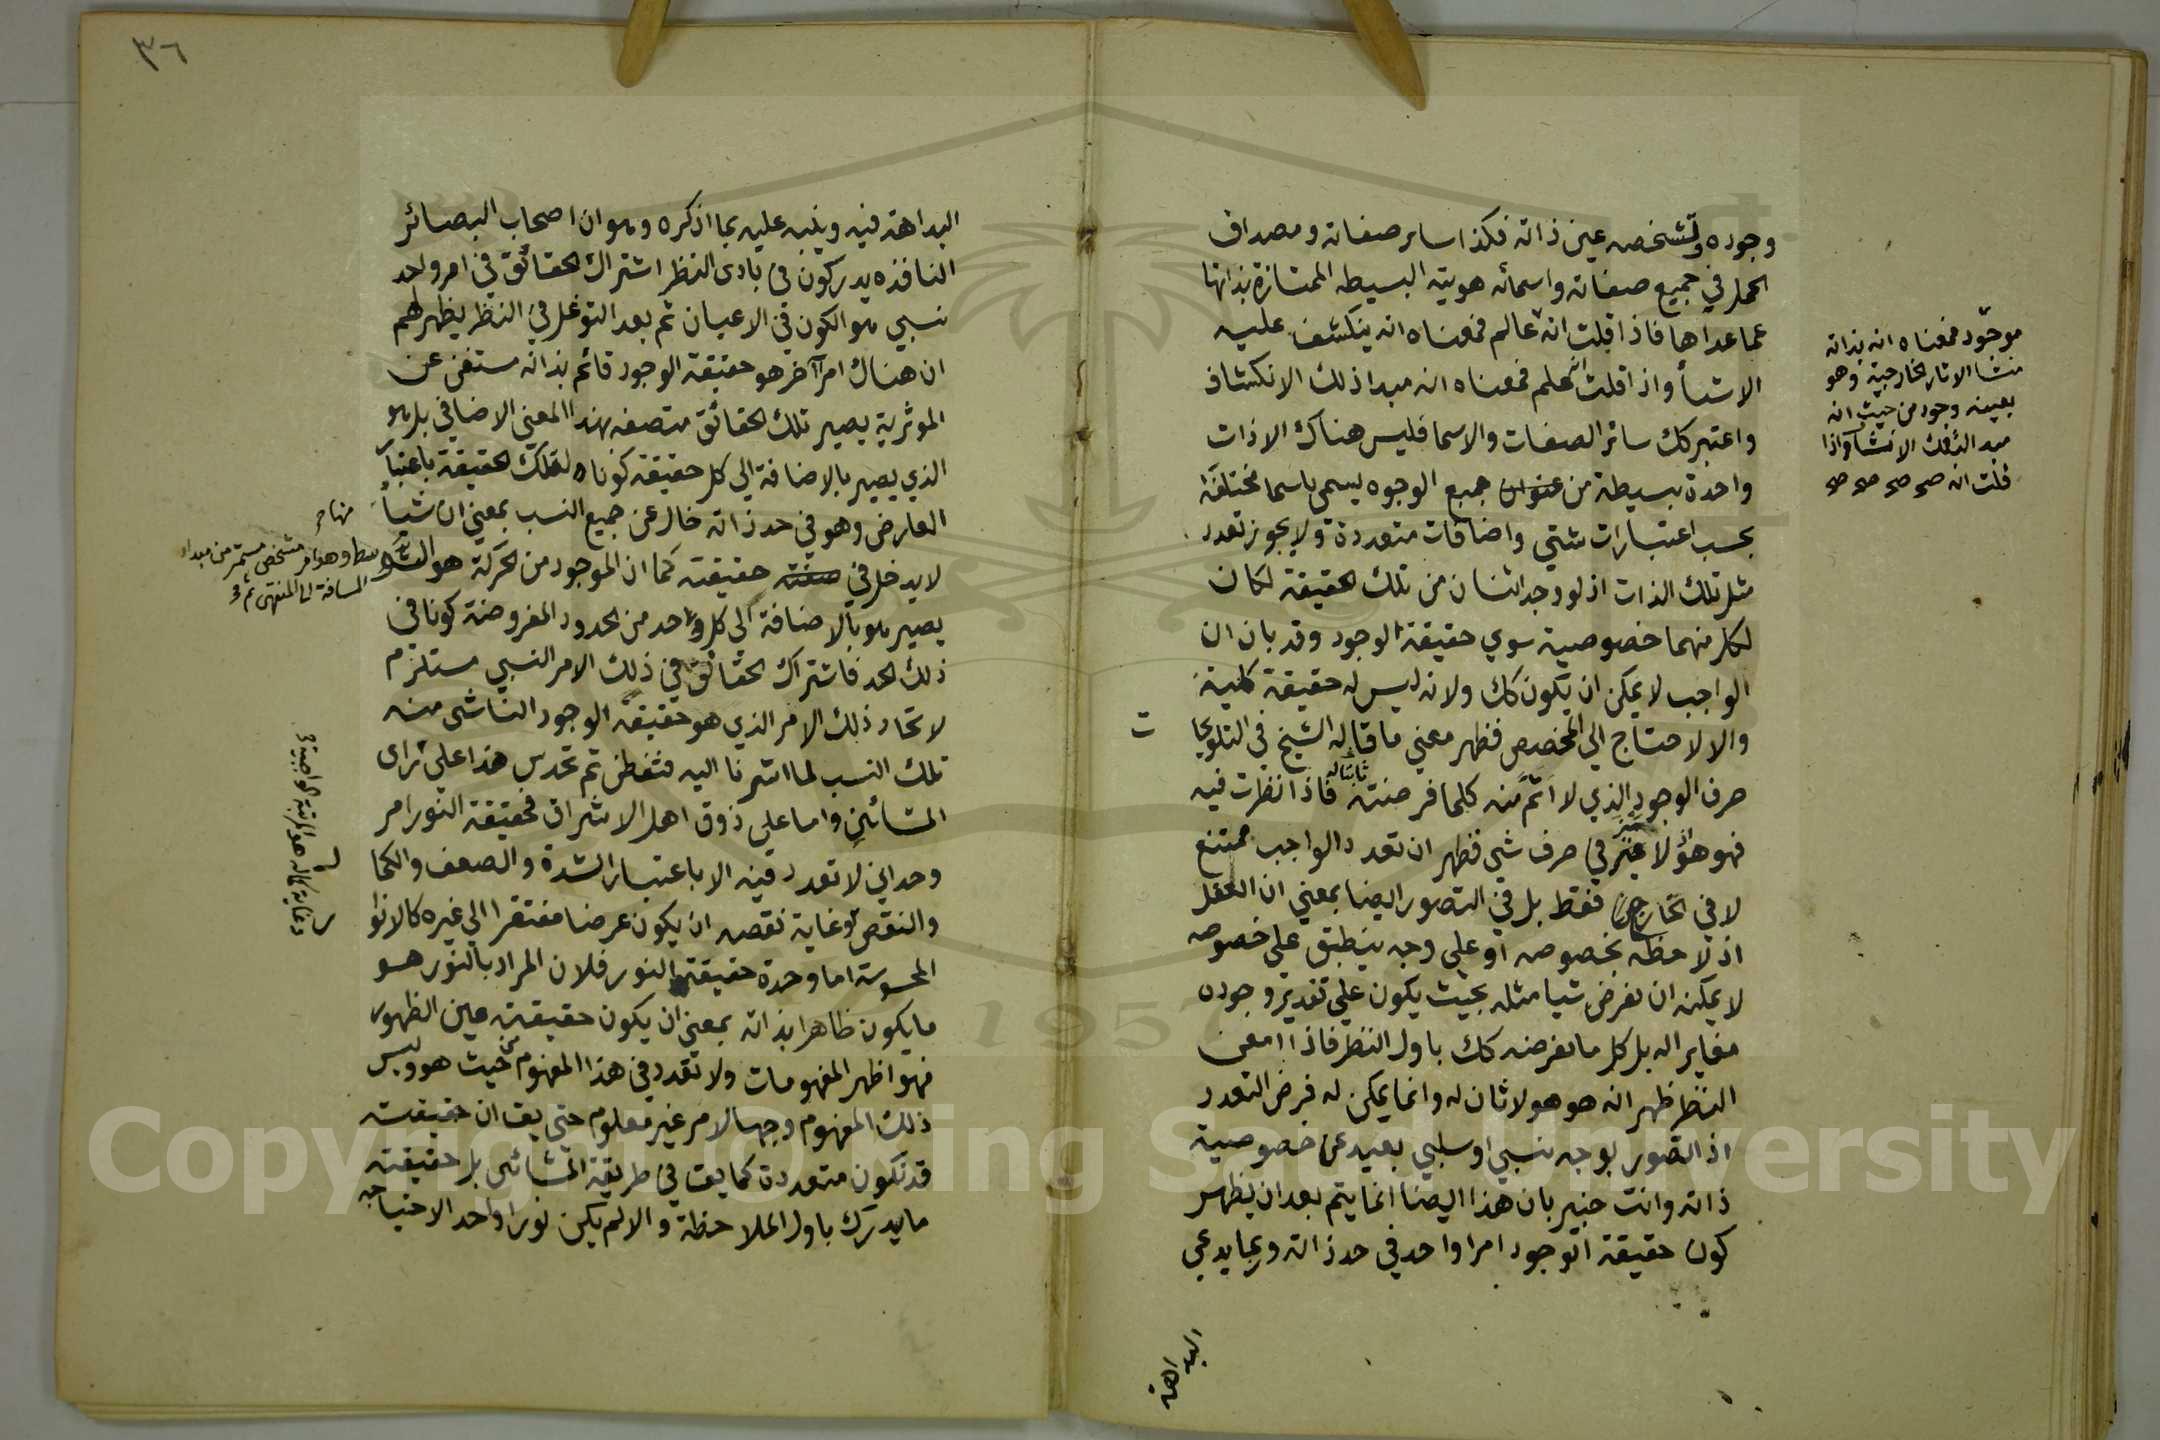 وجوده وتشخصه عين ذاته فكذا ساير صفاته ومصداق
الحمل في جميع صفاته واسمائه هويته البسيطه الممتازة بذاتها
عما عداها فاذا قلت انه عالم فمعناه انه ينكشف عليه
الاشيأ واذا قلت انه علم فمعناه انه مبدا ذلك الانكشاف
واعتبر كك سائر الصفات والاسما فليس هناك الا ذات
واحدة بسيطة من جميع الوجوه يسمى باسما مختلفة
بحسب اعتبارات شتي واضافات متعددة ولا يجوز تعدد
مثل تلك الذات اذ لو وجد اثنان من تلك الحقيقة لكان
لكل منهما خصوصية سوي حقيقة الوجود وقد بان ان
الواجب لا يمكن ان يكون كك ولانه ليس له حقيقة كلية
والا لاحتاج الي المخصص فظهر معني ما قاله الشيخ في التلويحا
ت
صرف الوجود الذي لا اتم منه كلما فرضته ثانيا له فاذا نظرت فيه
فهو هو اذ لا ميز في صرف شي فظهر ان تعدد الواجب ممتنع
لا في الخارج فقط بل في التصور ايضا بمعني ان العقل
اذ لاحظه بخصوصه او علي وجه ينطبق علي خصوصه
لا يمكنه ان يفرض شيا مثله بحيث يكون علي تقدير وجوده
مغايرا له بل كل ما يفرضه كك باول النظر فاذا امعن
النظر ظهر انه هو هو لا ثان له وانما يمكن له فرض التعدد
اذ القصور بوجه نسبي او سلبي بعيد عن خصوصية
ذاته وانت خبير بان هذا ايضا انما يتم بعد ان يظهر
كون حقيقة الوجود امرا واحد في حد ذاته وربما يدعي
البداهة
موجود فمعناه انه بذاته
منشا الاثار الخارجية وهو
بعينه وجود من حيث انه
مبدا لذلك الانشأ واذا
قلت انه صح صح صح صح
٣٦
البداهة فيه وينبه عليه بما اذكره وهو ان اصحاب البصائر
النافذه يدركون في بادي النظر اشتراك الحقائق في امر واحد
نسبي هو الكون في الاعيان ثم بعد التوغل في النظر يظهر لهم
ان هناك امرآ اخر هو حقيقة الوجود قائم بذاته مستغن عن
الموثرية يصير تلك الحقائق متصفه بهذا المعني الاضافي بل هو
الذي يصير بالاضافة الي كل حقيقة كونا لتلك الحقيقة باعتبار
العارض وهو في حد ذاته خال عن جميع النسب بمعني ان شيأ
منها صح
لا يدخل في صفته حقيقته كما ان الموجود من الحركة هو التو
سط وهو امر مشخص مستمر من مبدا
المسافة الي المنتهي ثم
يصير هو بالاضافة الي كل واحد من الحدود المفروضة كونا في
ذلك الحد فاشتراك الحقائق في ذلك الامر النسبي مستلزم
لاتحاد ذلك الامر الذي هو حقيقة الوجود الناشى منه
تلك النسب لما اشرنا اليه فتفطن ثم تحدس هذا علي راى
المشائين واما علي ذوق اهل الاشراق فحقيقة النور امر
وحداني لا تعدد فيه الا باعتبار الشدة والضعف والكما
ل
وغاية كماله هو المرتبة الواجبية
والنقص وغاية نقصه ان يكون عرضا مفتقرا الي غيره كالانوا
ر
المحسوسة اما وحدة حقيقة النور فلان المراد بالنور هو
ما يكون ظاهرا بذاته بمعني ان يكون حقيقته عين الظهور
فهو اظهر المفهومات ولا تعدد في هذا المفهوم من حيث هو وليس
ذلك المفهوم وجها لامر غير معلوم حتي يق ان حقيقته
قد تكون متعددة كما يق في طريقة المشائى بل حقيقته
ما يدرك باول الملاحظة والا لم يكن نورا واحد الاحتياجه
Copyright © King Saud University
1957